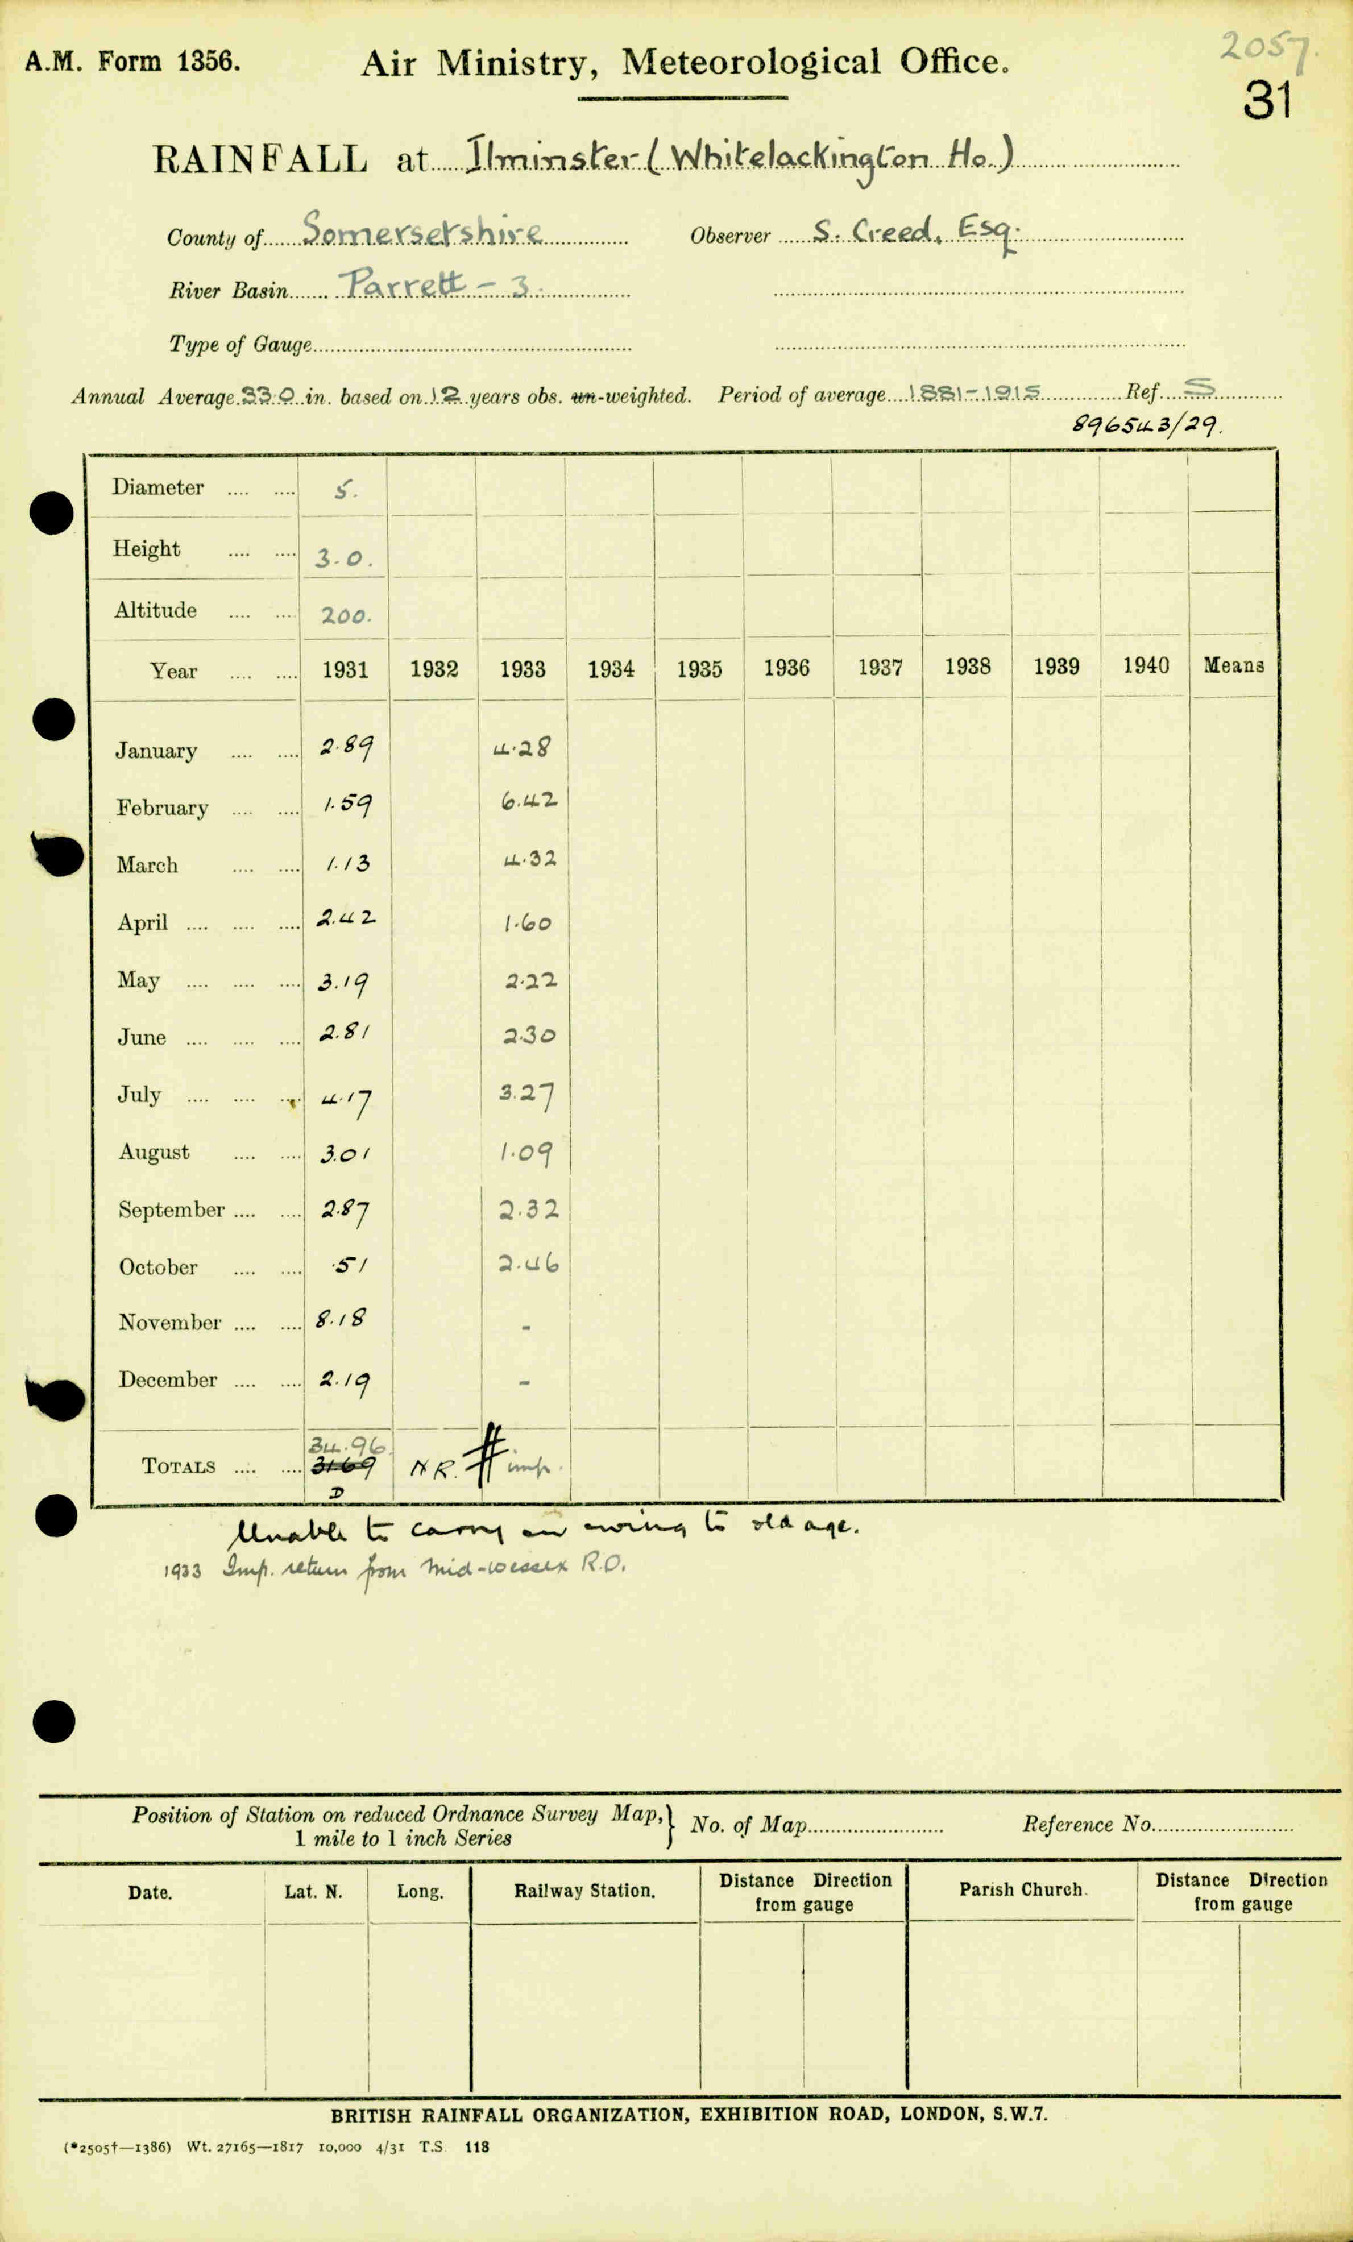 2057.
A.M. Form 1356. Air Ministry, Meteorological Office.
31
RAINFALL at Ilminster (Whitelackington Ho.)
County of Somersetshire Observer S. Creed, Esq.
River Basin Parrett - 3.
Type of Gauge
Annual Average 33.0 in. based on 12 years obs. un-weighted. Period of average 1881-1915 Ref. S
896543/29.
Diameter .... .... 5.
Height .... .... 3.0.
Altitude .... .... 200.
Year .... .... 1931 1932 1933 1934 1935 1936 1937 1938 1939 1940 Means
January .... .... 2.89 4.28
February .... .... 1.59 6.42
March .... .... 1.13 4.32
April .... .... .... 2.42 1.60
May .... .... .... 3.19 2.22
June .... .... .... 2.81 2.30
July .... .... .... 4.17 3.27
August .... .... 3.01 1.09
September .... .... 2.87 2.32
October .... .... .51 2.46
November .... .... 8.18 -
December .... .... 2.19 -
34.96.
TOTALS .... .... 31.69 N R. # imp.
D
Unable to carry on owing to old age.
1933 Imp. return from Mid-Wessex R.O.
Position of Station on reduced Ordnance Survey Map, } No. of Map Reference No.
1 mile to 1 inch Series
Date. Lat. N. Long. Railway Station. Distance Direction from gauge Parish Church. Distance Direction from gauge
BRITISH RAINFALL ORGANIZATION, EXHIBITION ROAD, LONDON, S.W.7.
(*2505†—1386) Wt. 27165—1817 10,000 4/31 T.S. 118